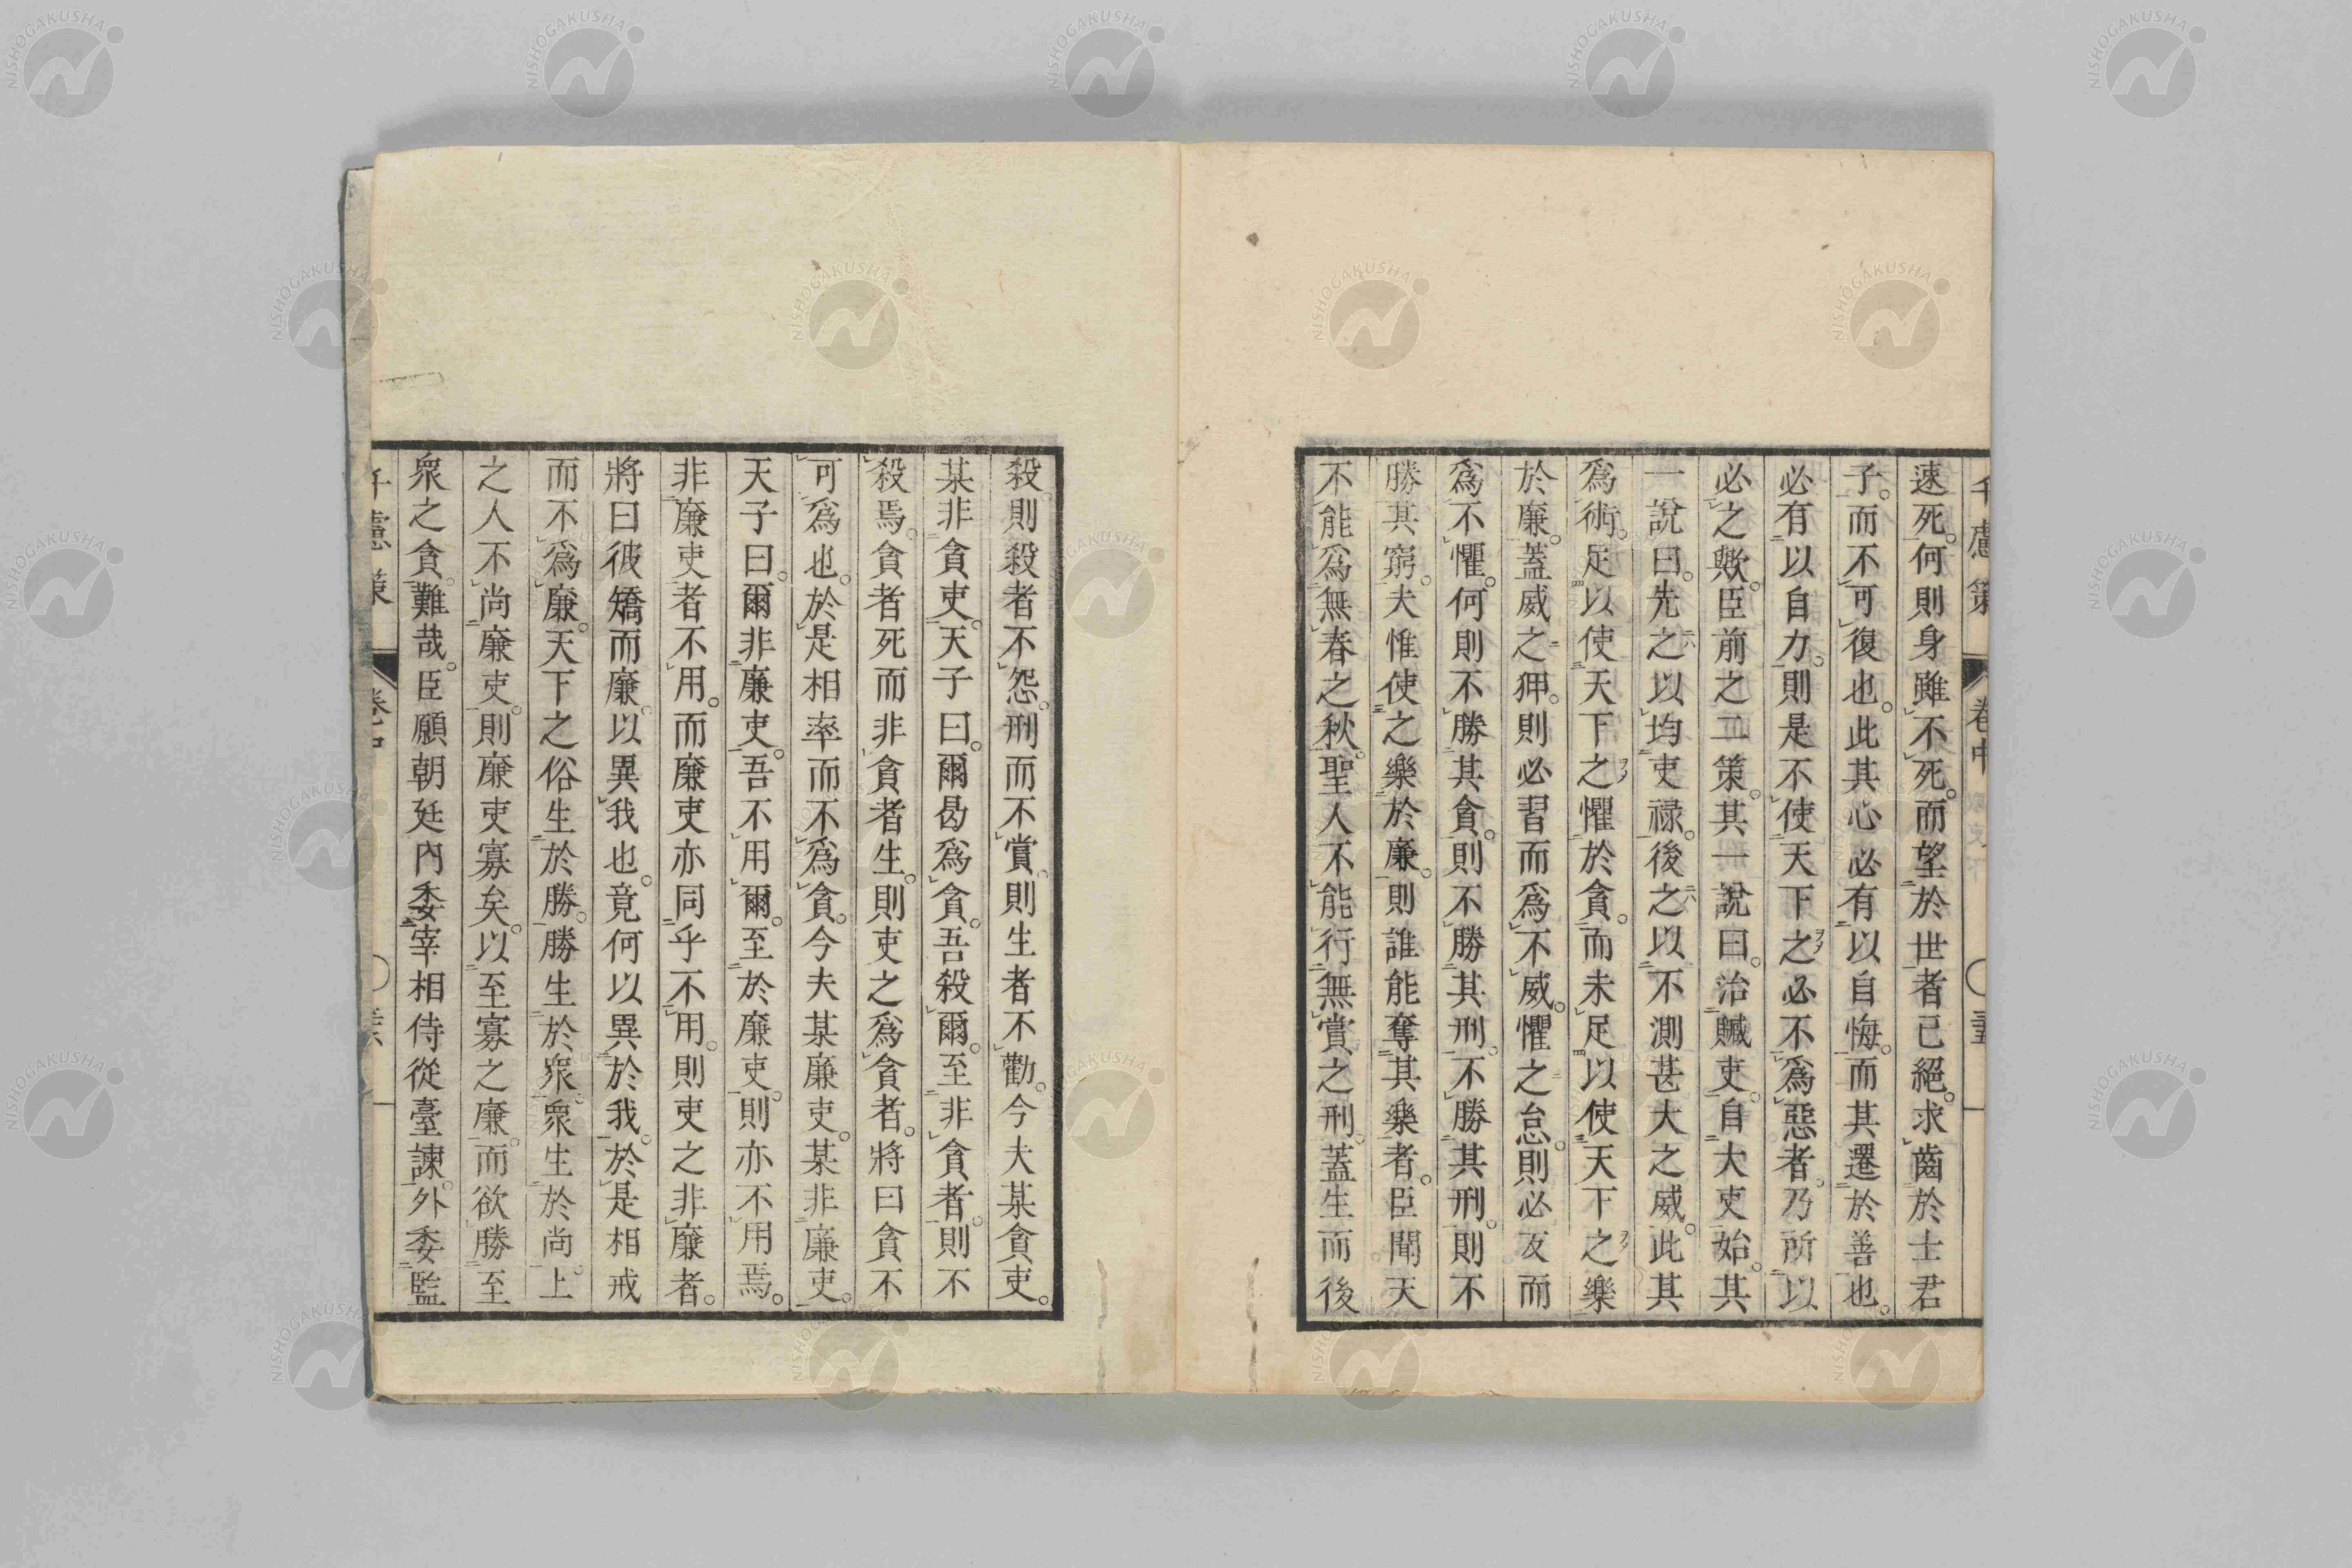 千慮策 卷中
速死。何則身雖不死。而望於世者已絕。求齒於士君
子。而不可復也。此其心必有以自悔。而其遷於善也。
必有以自力。則是不使天下之必不爲惡者。乃所以
必之歟。臣前之二策。其一說曰。治贓吏。自大吏始。其
一說曰。先之以均吏祿。後之以不測甚大之威。此其
爲術。足以使天下之懼於貪。而未足以使天下之樂
於廉。蓋威之狎。則必習而爲不威。懼之怠。則必反而
爲不懼。何則不勝其貪。則不勝其刑。不勝其刑。則不
勝其窮。夫惟使之樂於廉。則誰能奪其樂者。臣聞天
不能爲無春之秋。聖人不能行無賞之刑。蓋生而後
殺。則殺者不怨。刑而不賞。則生者不勸。今夫某貪吏。
某非貪吏。天子曰。爾曷爲貪。吾殺爾。至非貪者。則不
殺焉。貪者死而非貪者生。則吏之爲貪者。將曰貪不
可爲也。於是相率而不爲貪。今夫某廉吏。某非廉吏。
天子曰。爾非廉吏。吾不用爾。至於廉吏。則亦不用焉。
非廉吏者不用。而廉吏亦同乎不用。則吏之非廉者。
將曰彼矯而廉。以異我也。竟何以異於我。於是相戒
而不爲廉。天下之俗生於勝。勝生於衆。衆生於尚。上
之人不尚廉吏。則廉吏寡矣。以至寡之廉。而欲勝至
衆之貪。難哉。臣願朝廷內委宰相侍從臺諫。外委監
千慮策 卷中